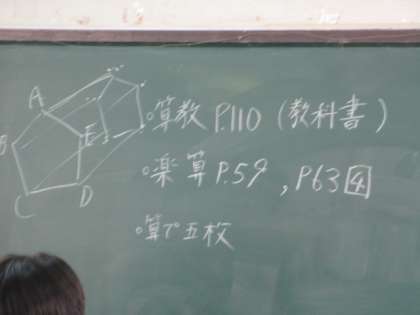 A
B
E
C
D
○算教 P.110 (教科書)
○楽算 P.59 , P63 4
○算プ 五枚